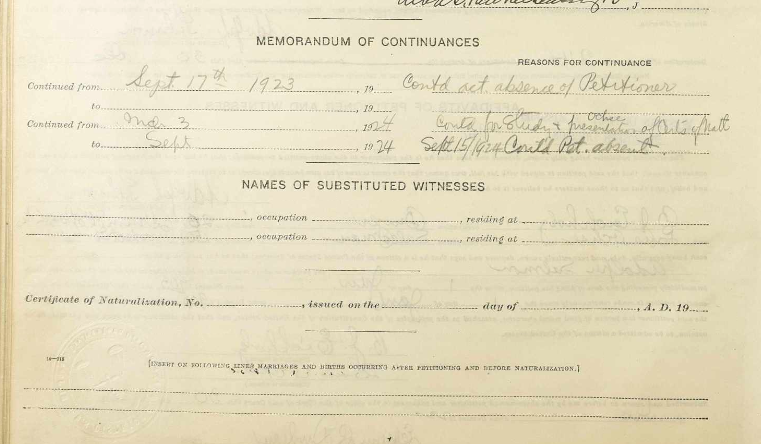 MEMORANDUM OF CONTINUANCES
REASONS FOR CONTINUANCE
Continued from Sept 17th 1923, 19 Contd act. absence of Petitioner
to , 19
Continued from Mch 3 1924 Contd for Study & presentation other of
to Sept , 1924 Sept 15/1924 Contd Pet. absent.
NAMES OF SUBSTITUTED WITNESSES
, occupation , residing at
, occupation , residing at
Certificate of Naturalization, No. , issued on the day of , A. D. 19
[INSERT ON FOLLOWING LINES MARRIAGES AND BIRTHS OCCURRING AFTER PETITIONING AND BEFORE NATURALIZATION.]